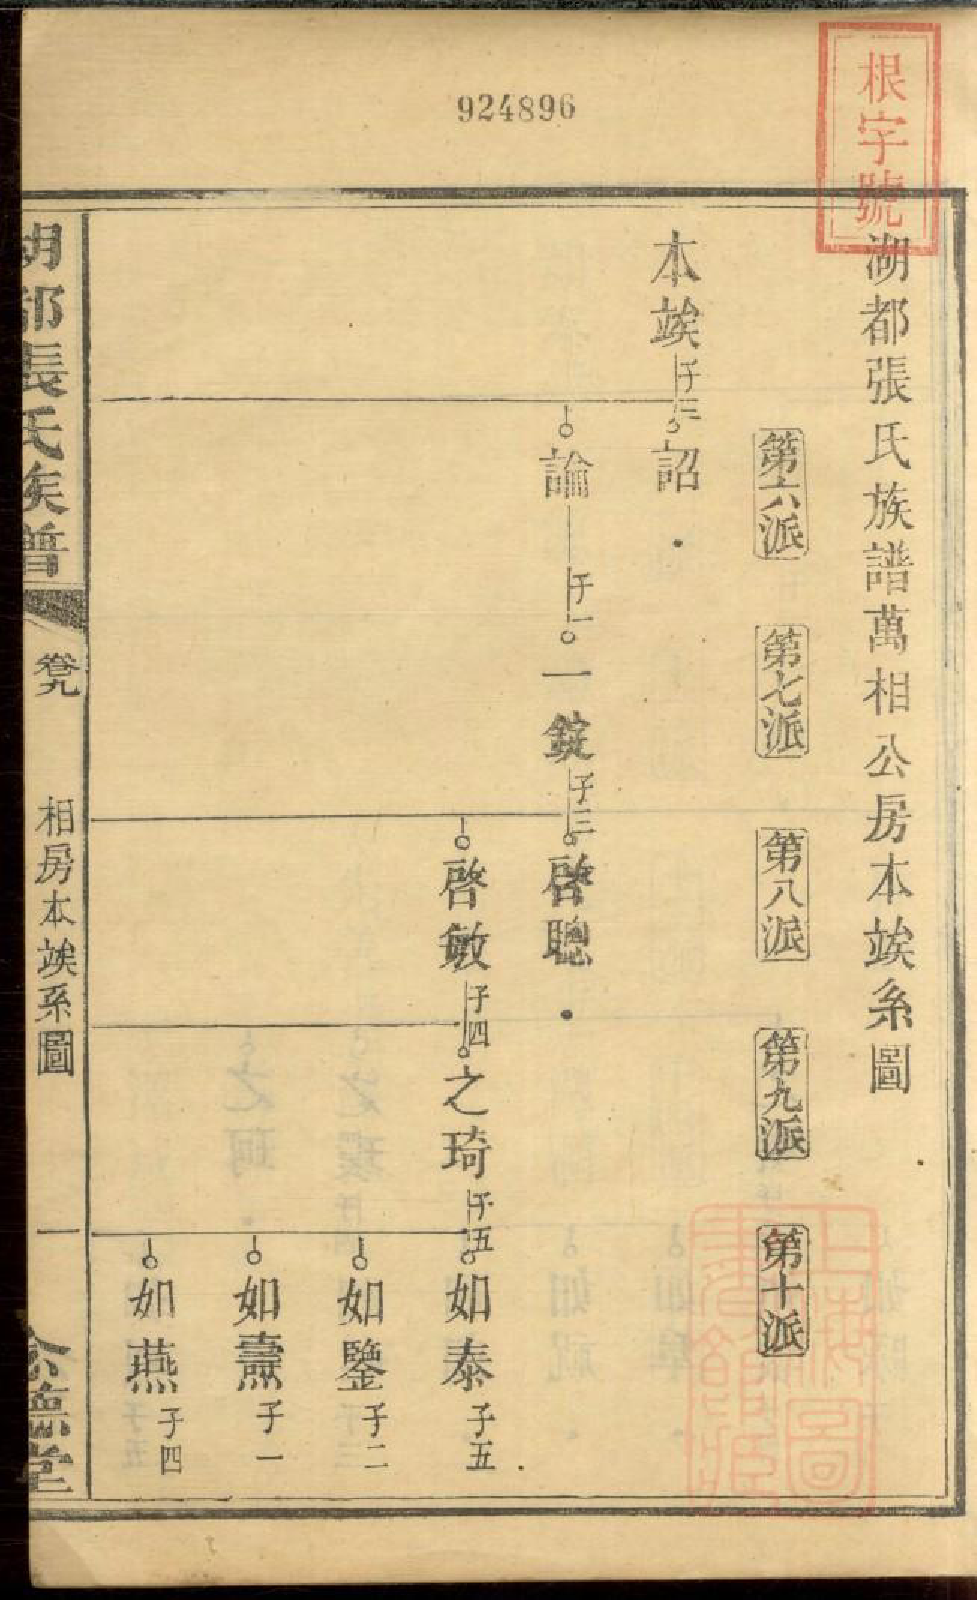 924896
根字號
湖都張氏族譜萬相公房本竢系圖
第六派
第七派
第八派
第九派
第十派
本竢 子三
詔
論 子一
一錠 子三
啓聰
啓敏 子四
之琦 子五
如泰 子五
如鑒 子二
如燾 子一
如燕 子四
胡都張氏族譜
卷九
相房本竢系圖
一